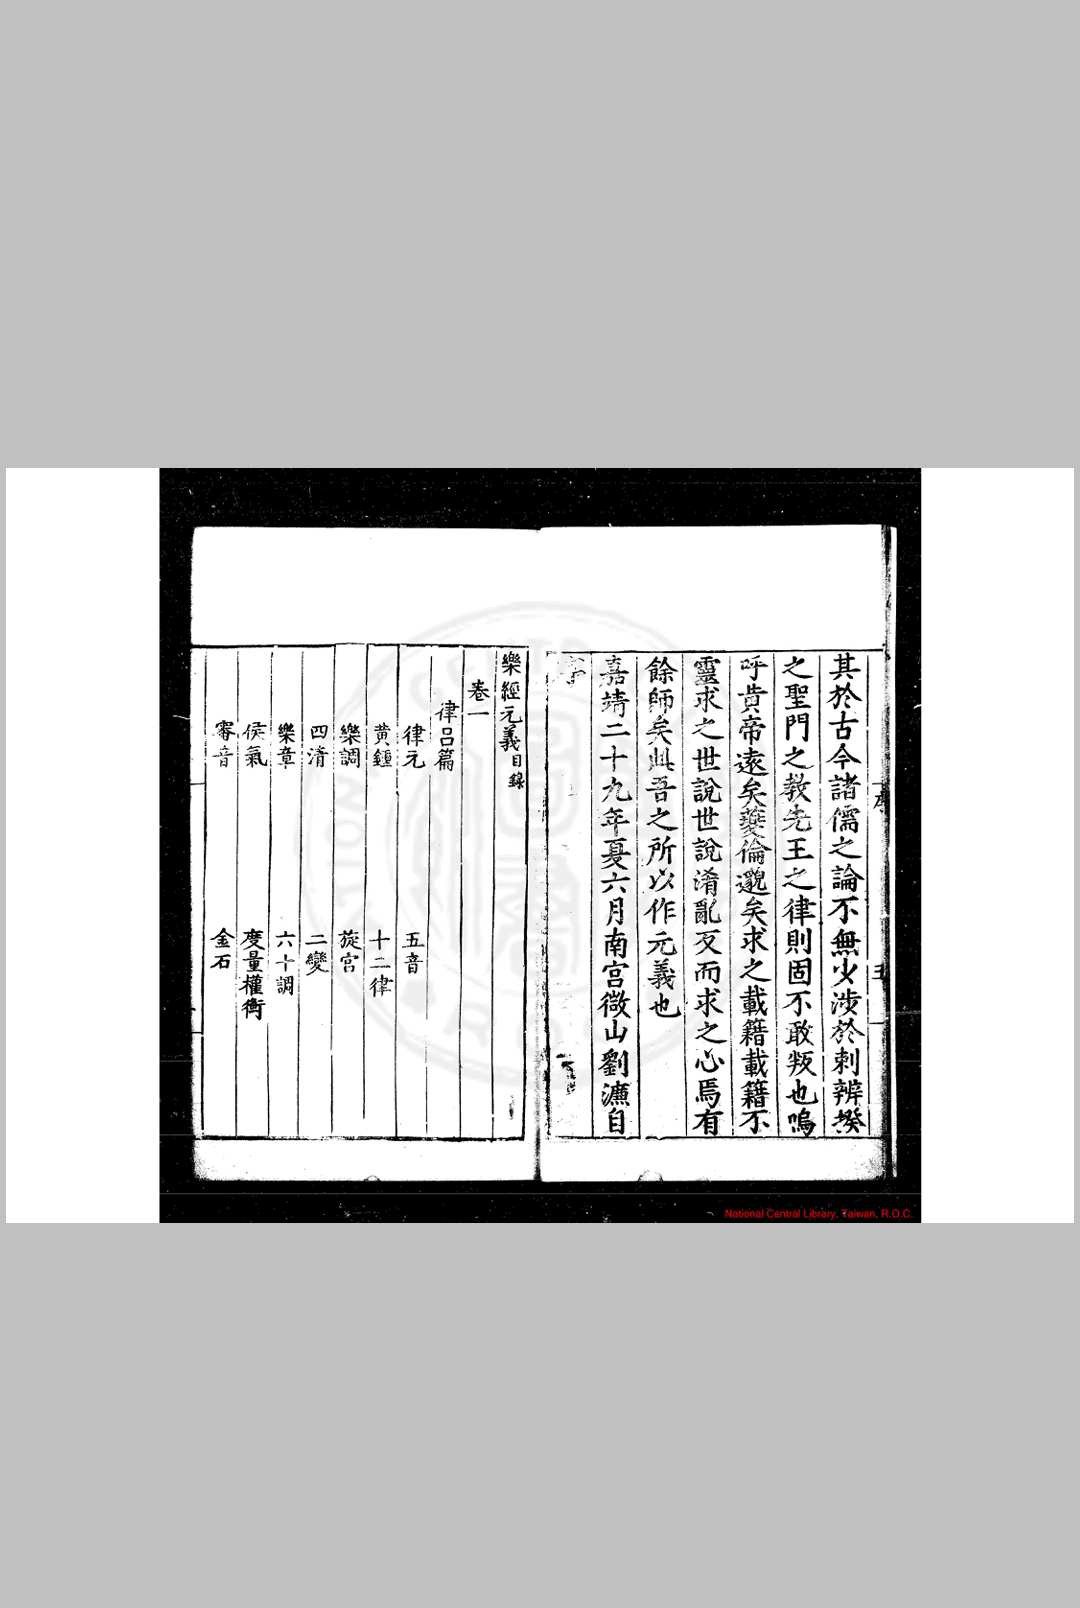 其於古今諸儒之論不無少涉於刺辨揆
之聖門之教先王之律則固不敢叛也嗚
呼黄帝遠矣夔倫邈矣求之載籍載籍不
靈求之世說世說淆亂反而求之心焉有
餘師矣此吾之所以作元義也
嘉靖二十九年夏六月南宫微山劉濂自
序
樂經元義目錄
卷一
律吕篇
律元 五音
黄鍾 十二律
樂調 旋宫
四清 二變
樂章 六十調
侯氣 度量權衡
審音 金石
National Central Library, Taiwan, R.O.C.